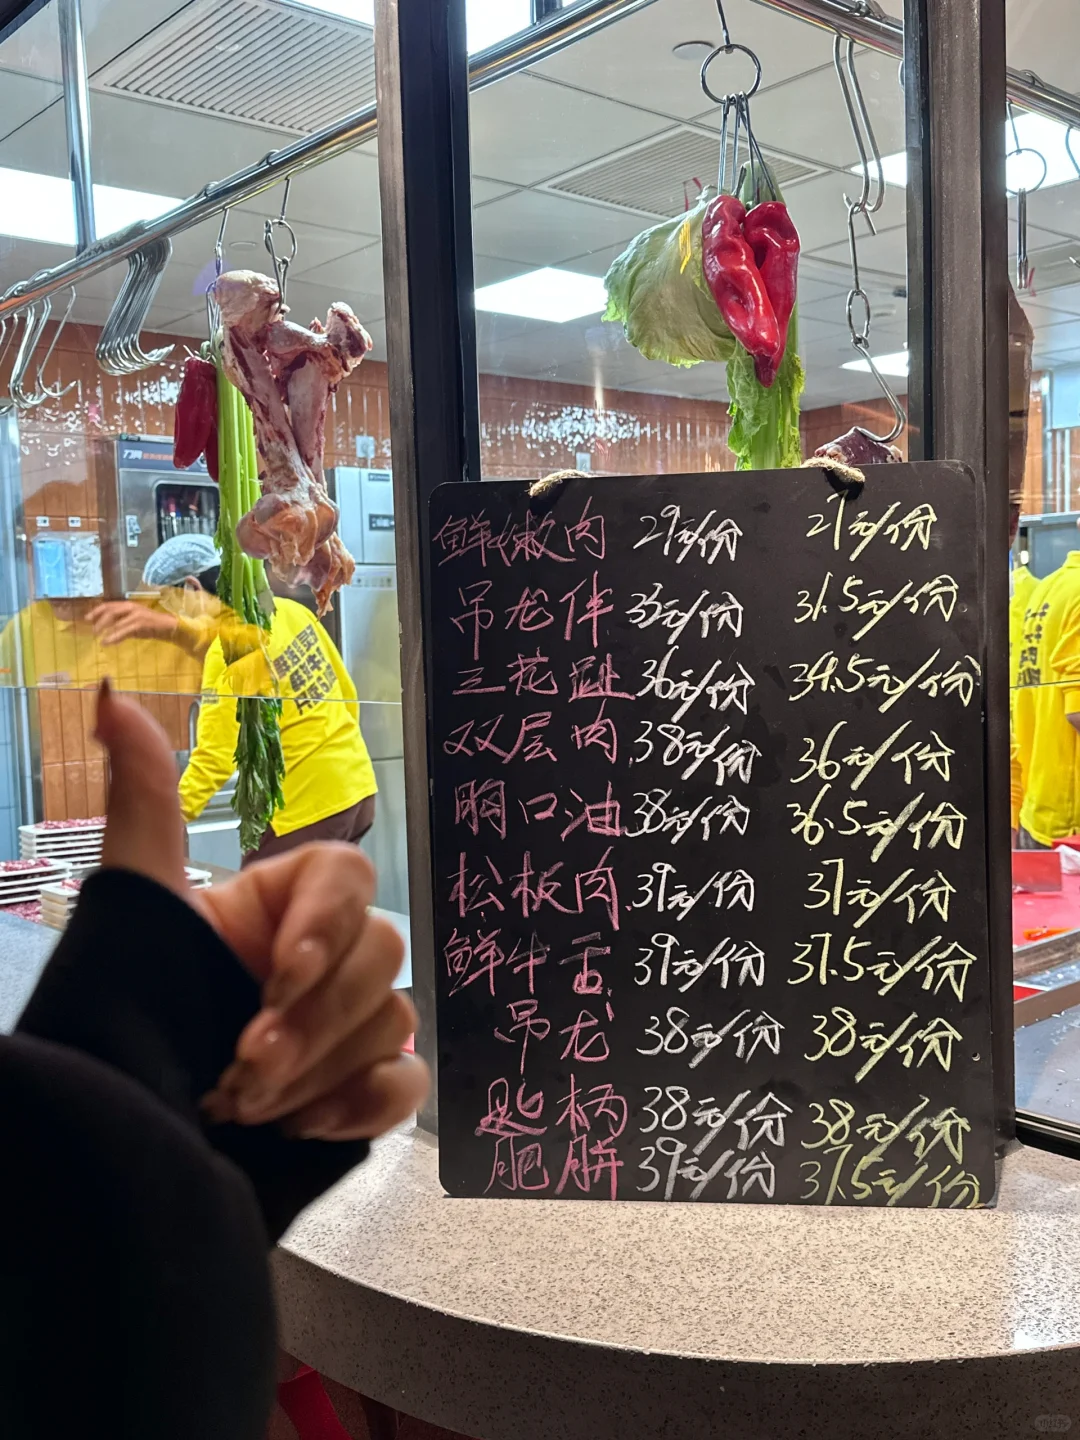 鲜嫩肉 29元/份 27元/份
吊龙伴 33元/份 31.5元/份
三花趾 36元/份 34.5元/份
双层肉 38元/份 36元/份
胸口油 38元/份 36.5元/份
松板肉 39元/份 37元/份
鲜牛舌 39元/份 37.5元/份
吊龙 38元/份 38元/份
匙柄 38元/份 38元/份
肥胼 39元/份 37.5元/份